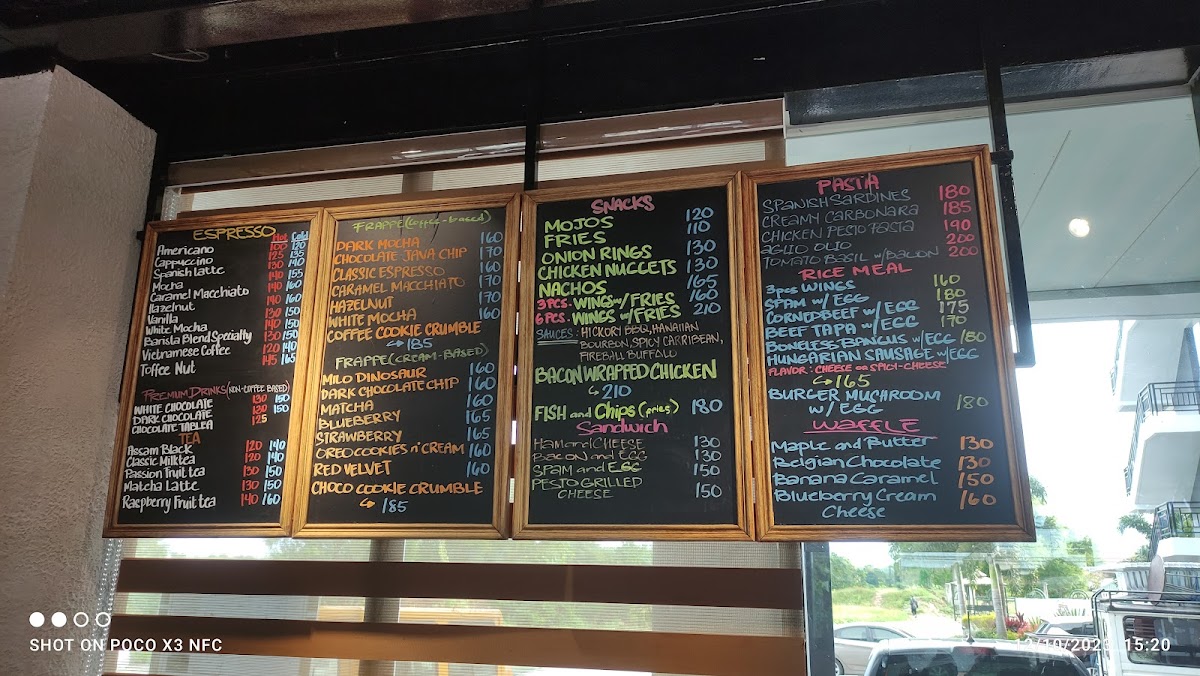 ESPRESSO Hot Cold
Americano 100 120
Cappuccino 125 135
Spanish Latte 130 140
Mocha 140 155
Caramel Macchiato 140 160
Hazelnut 140 160
Vanilla 130 150
White Mocha 140 150
Barista Blend Specialty 130 150
Vietnamese Coffee 120 140
Toffee Nut 145 165
PREMIUM DRINKS (NON-COFFEE BASED)
WHITE CHOCOLATE 130 150
DARK CHOCOLATE 130 150
CHOCOLATE TABLEA 125
TEA
Assam Black 120 140
Classic Milktea 120 140
Passion Fruit tea 130 150
Matcha Latte 130 150
Raspberry Fruit tea 140 160
FRAPPE (Coffee-based)
DARK MOCHA 160
CHOCOLATE JAVA CHIP 170
CLASSIC ESPRESSO 160
CARAMEL MACCHIATO 170
HAZELNUT 170
WHITE MOCHA 160
COFFEE COOKIE CRUMBLE
↪ 185
FRAPPE (CREAM-BASED)
MILO DINOSAUR 160
DARK CHOCOLATE CHIP 160
MATCHA 160
BLUEBERRY 165
STRAWBERRY 165
OREO COOKIES n' CREAM 160
RED VELVET 160
CHOCO COOKIE CRUMBLE
↪ 185
SNACKS
MOJOS 120
FRIES 110
ONION RINGS 130
CHICKEN NUGGETS 130
NACHOS 165
3 PCS. WINGS w/ FRIES 160
6 PCS. WINGS w/ FRIES 210
SAUCES: HICKORY BBQ, HAWAIIAN
BOURBON, SPICY CARRIBEAN,
FIREBALL BUFFALO
BACON WRAPPED CHICKEN
↪ 210
FISH and Chips (fries) 180
Sandwich
HAM and CHEESE 130
BACON and EGG 130
SPAM and EGG 150
PESTO GRILLED
CHEESE 150
PASTA
SPANISH SARDINES 180
CREAMY CARBONARA 185
CHICKEN PESTO PASTA 190
AGLIO OLIO 200
TOMATO BASIL w/ BACON 200
RICE MEAL
3 pcs WINGS 160
SPAM w/ EGG 180
CORNED BEEF w/ EGG 175
BEEF TAPA w/ EGG 170
BONELESS BANGUS w/ EGG 180
HUNGARIAN SAUSAGE w/ EGG
FLAVOR: CHEESE OR SPICY-CHEESE
↪ 165
BURGER MUSHROOM
w/ EGG 180
WAFFLE
Maple and Butter 130
Belgian Chocolate 130
Banana Caramel 150
Blueberry Cream 160
Cheese
SHOT ON POCO X3 NFC
/10/2023 15:20